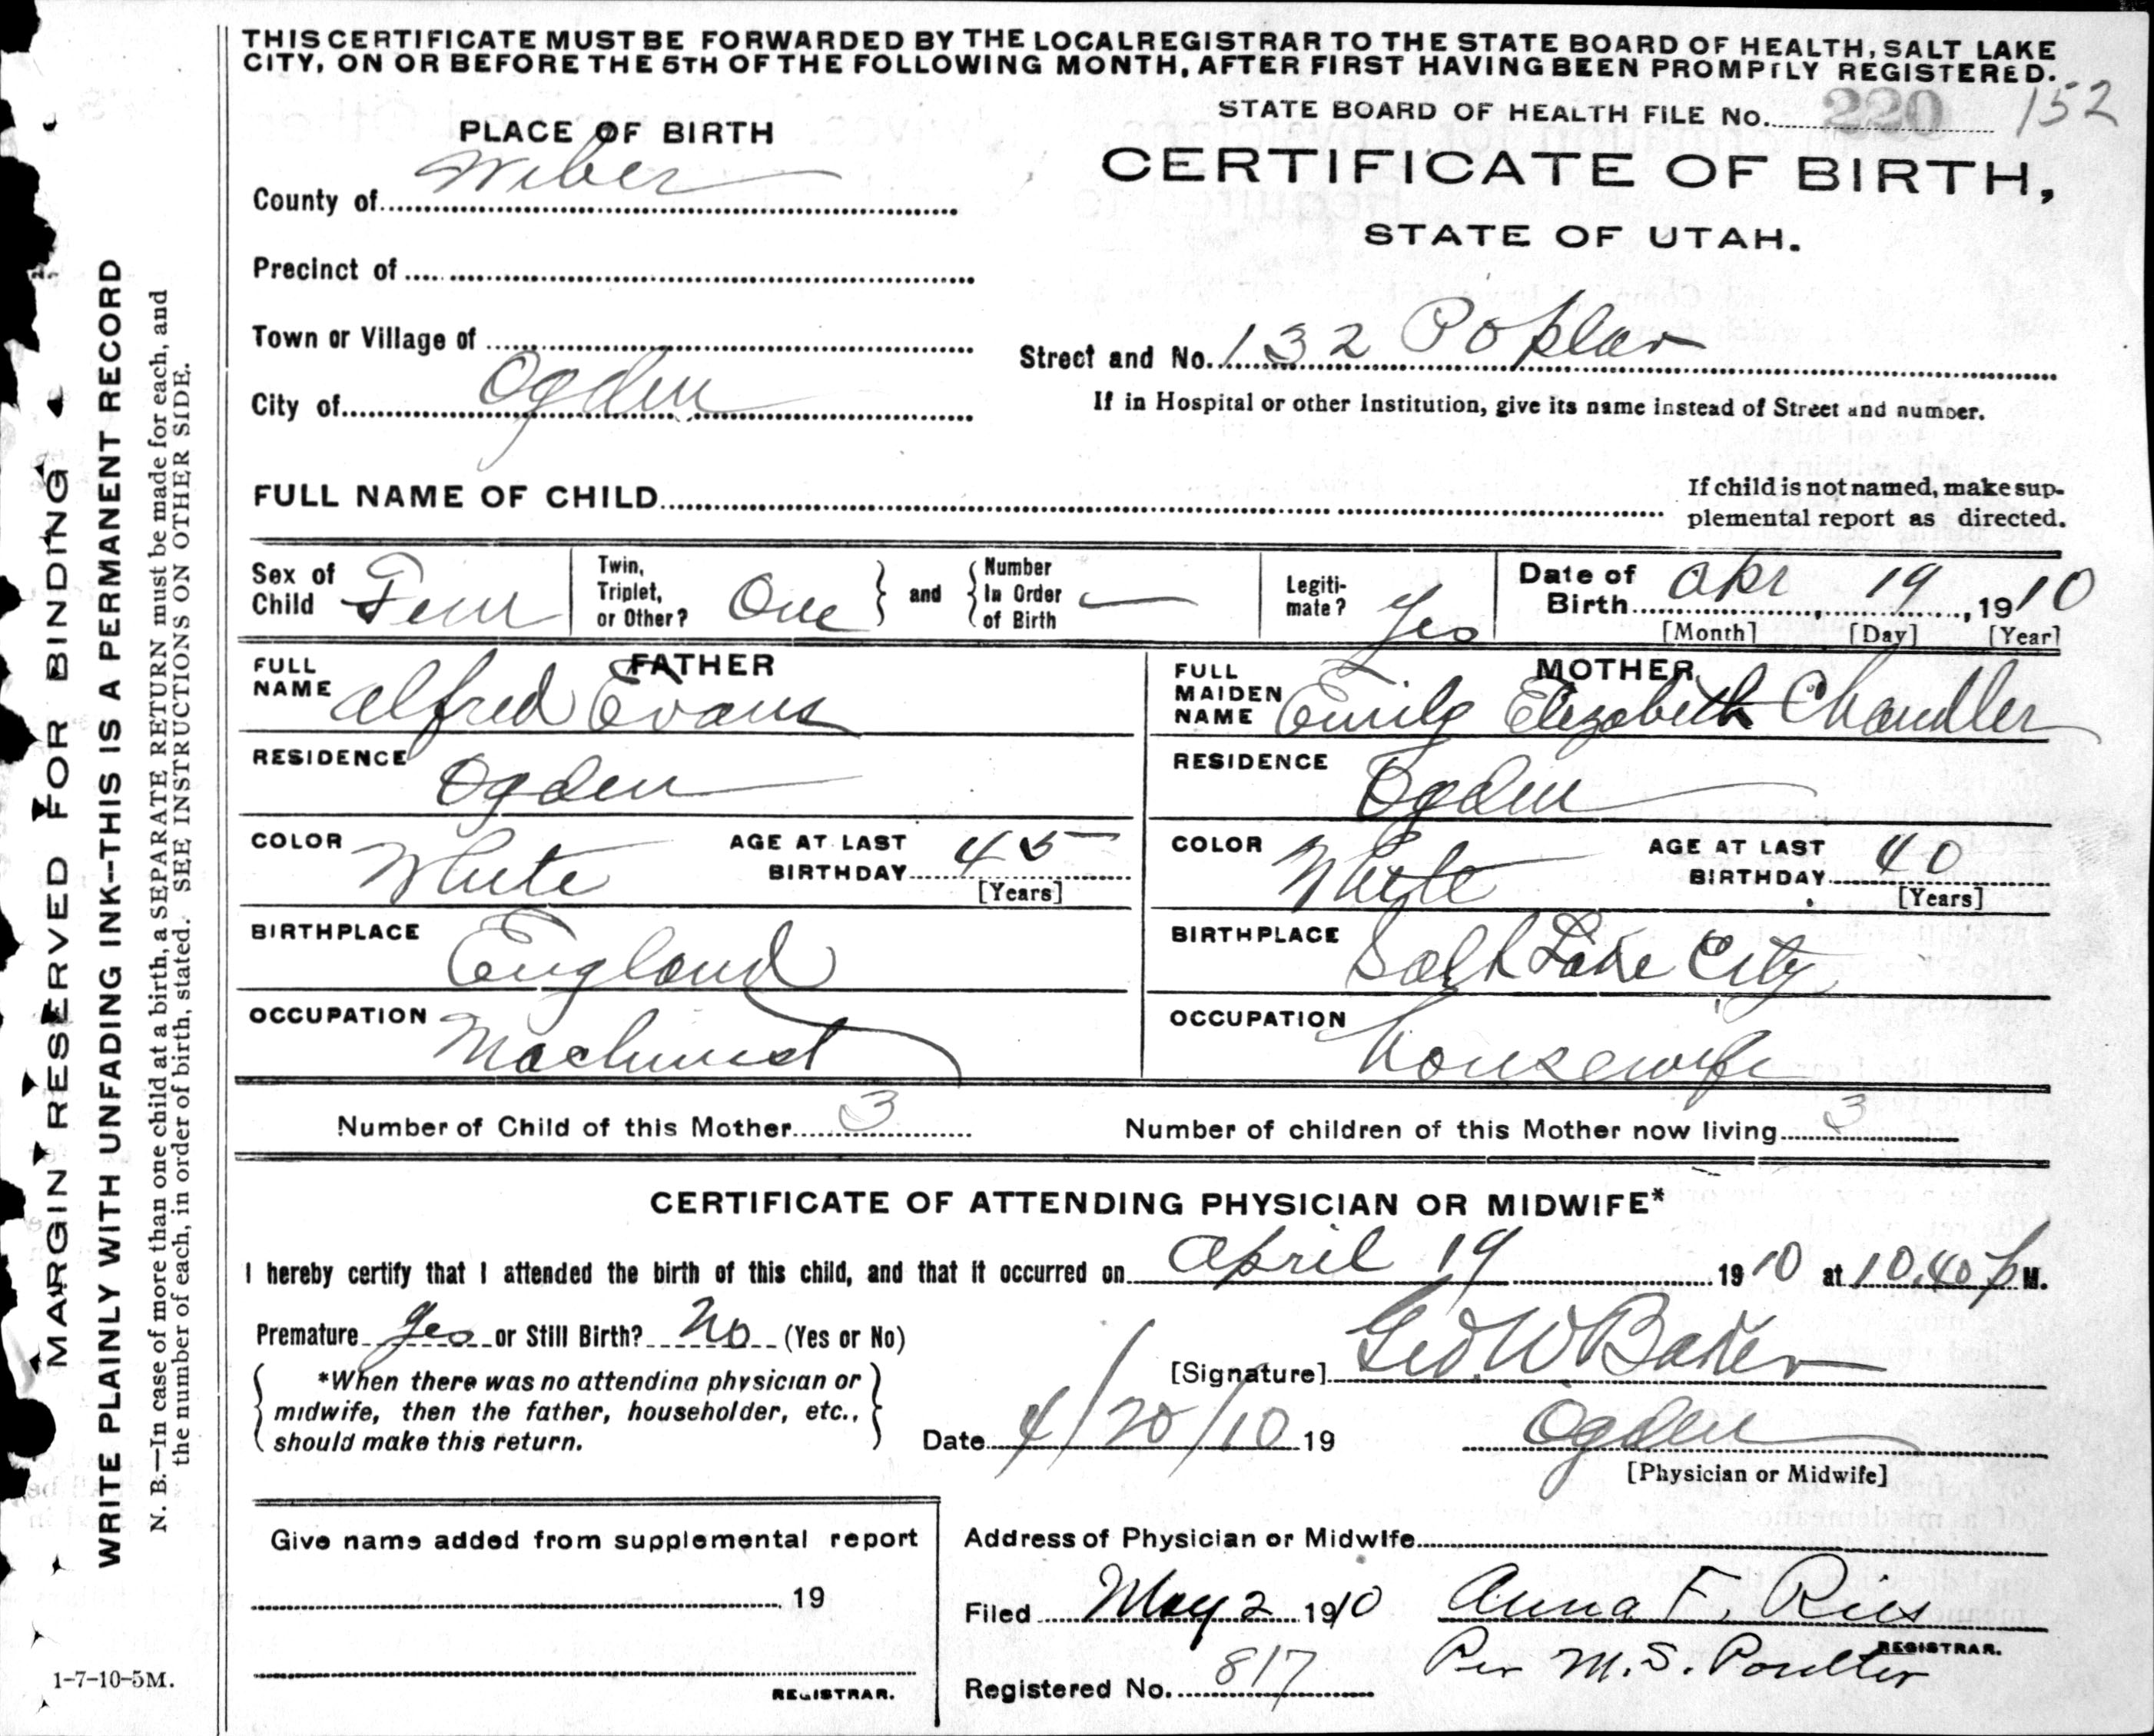 THIS CERTIFICATE MUST BE FORWARDED BY THE LOCAL REGISTRAR TO THE STATE BOARD OF HEALTH, SALT LAKE
CITY, ON OR BEFORE THE 5TH OF THE FOLLOWING MONTH, AFTER FIRST HAVING BEEN PROMPTLY REGISTERED.
STATE BOARD OF HEALTH FILE No. 220 152
PLACE OF BIRTH
CERTIFICATE OF BIRTH,
STATE OF UTAH.
County of Weber
Precinct of
Town or Village of
Street and No. 132 Poplar
City of Ogden
If in Hospital or other Institution, give its name instead of Street and number.
FULL NAME OF CHILD
If child is not named, make sup-
plemental report as directed.
Sex of Child Fem
Twin, Triplet, or Other? One
and
Number In Order of Birth —
Legiti-mate? Yes
Date of Birth Apr 19, 1910
[Month] [Day] [Year]
FATHER
FULL NAME Alfred Evans
RESIDENCE Ogden
COLOR White
AGE AT LAST BIRTHDAY 45
[Years]
BIRTHPLACE England
OCCUPATION Machinist
MOTHER
FULL MAIDEN NAME Emily Elizabeth Chandler
RESIDENCE Ogden
COLOR White
AGE AT LAST BIRTHDAY 40
[Years]
BIRTHPLACE Salt Lake City
OCCUPATION housewife
Number of Child of this Mother 3
Number of children of this Mother now living 3
CERTIFICATE OF ATTENDING PHYSICIAN OR MIDWIFE*
I hereby certify that I attended the birth of this child, and that it occurred on April 19 1910 at 10.40 p M.
Premature yes or Still Birth? No (Yes or No)
*When there was no attending physician or
midwife, then the father, householder, etc.,
should make this return.
[Signature] Geo. W Baker
Date 4/20/10 19
Ogden
[Physician or Midwife]
Give name added from supplemental report
19
REGISTRAR.
Address of Physician or Midwife
Filed May 2 1910 Anna F. Ries
REGISTRAR.
Per M. S. Poulter
Registered No. 817
MARGIN RESERVED FOR BINDING
WRITE PLAINLY WITH UNFADING INK--THIS IS A PERMANENT RECORD
N. B.—In case of more than one child at a birth, a SEPARATE RETURN must be made for each, and
the number of each, in order of birth, stated. SEE INSTRUCTIONS ON OTHER SIDE.
1-7-10-5M.